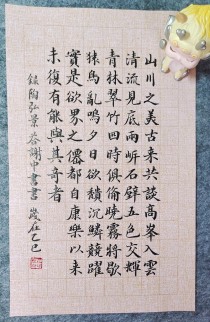 山川之美古来共談高峯入雲
清流見底兩岸石壁五色交輝
青林翠竹四時俱備曉霧將歇
猿鳥亂鳴夕日欲穨沉鱗競躍
實是欲界之僊都自康樂以来
未復有能與其奇者
錄陶弘景答謝中書書 歲在乙巳